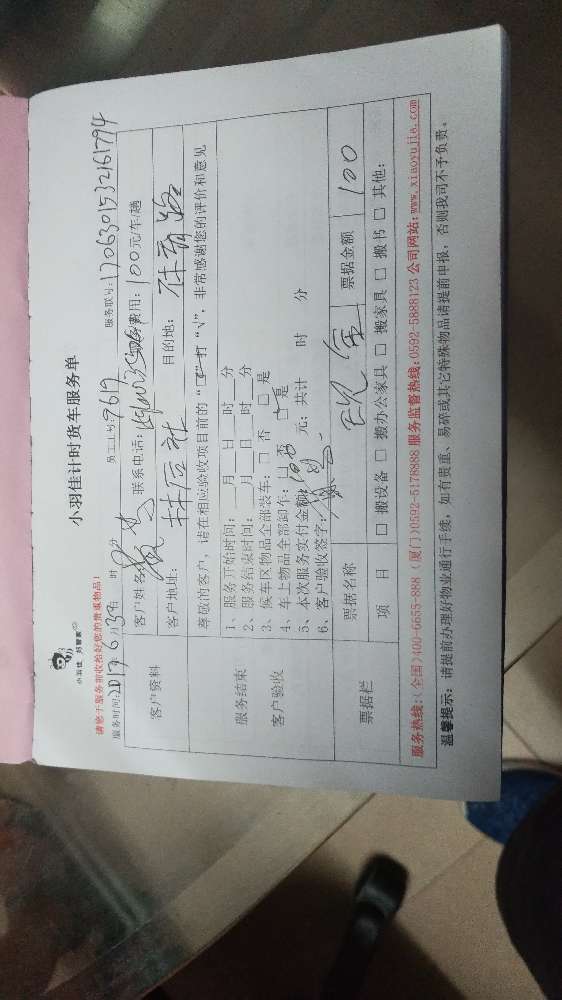 小羽佳 好管家
小羽佳计时货车服务单
请您于服务前收拾好您的贵重物品!
服务时间:2017年6月30日 时 分 员工工号:7617 服务联号:1706301532161794
客户资料
客户姓名: 联系电话: 服务费用:100元/车/趟
客户地址:林后社 目的地:
服务结束
客户验收
尊敬的客户,请在相应验收项目前的“□”打“√”,非常感谢您的评价和意见
1、服务开始时间: 月 日 时 分
2、服务结束时间: 月 日 时 分
3、候车区物品全部装车:□ 否 □ 是
4、车上物品全部卸下:□ 否 □ 是
5、本次服务实付金额: 元;共计 时 分
6、客户验收签字:
票据栏
票据名称 现金 票据金额 100
项 目 □ 搬设备 □ 搬办公家具 □ 搬家具 □ 搬书 □ 其他:
服务热线:(全国)400-6655-888 (厦门)0592-5178888 服务监督热线:0592-5888123 公司网站:www.xiaoyujia.com
温馨提示:请提前办理好物业通行手续,如有贵重、易碎或其它特殊物品请提前申报,否则我司不予负责。